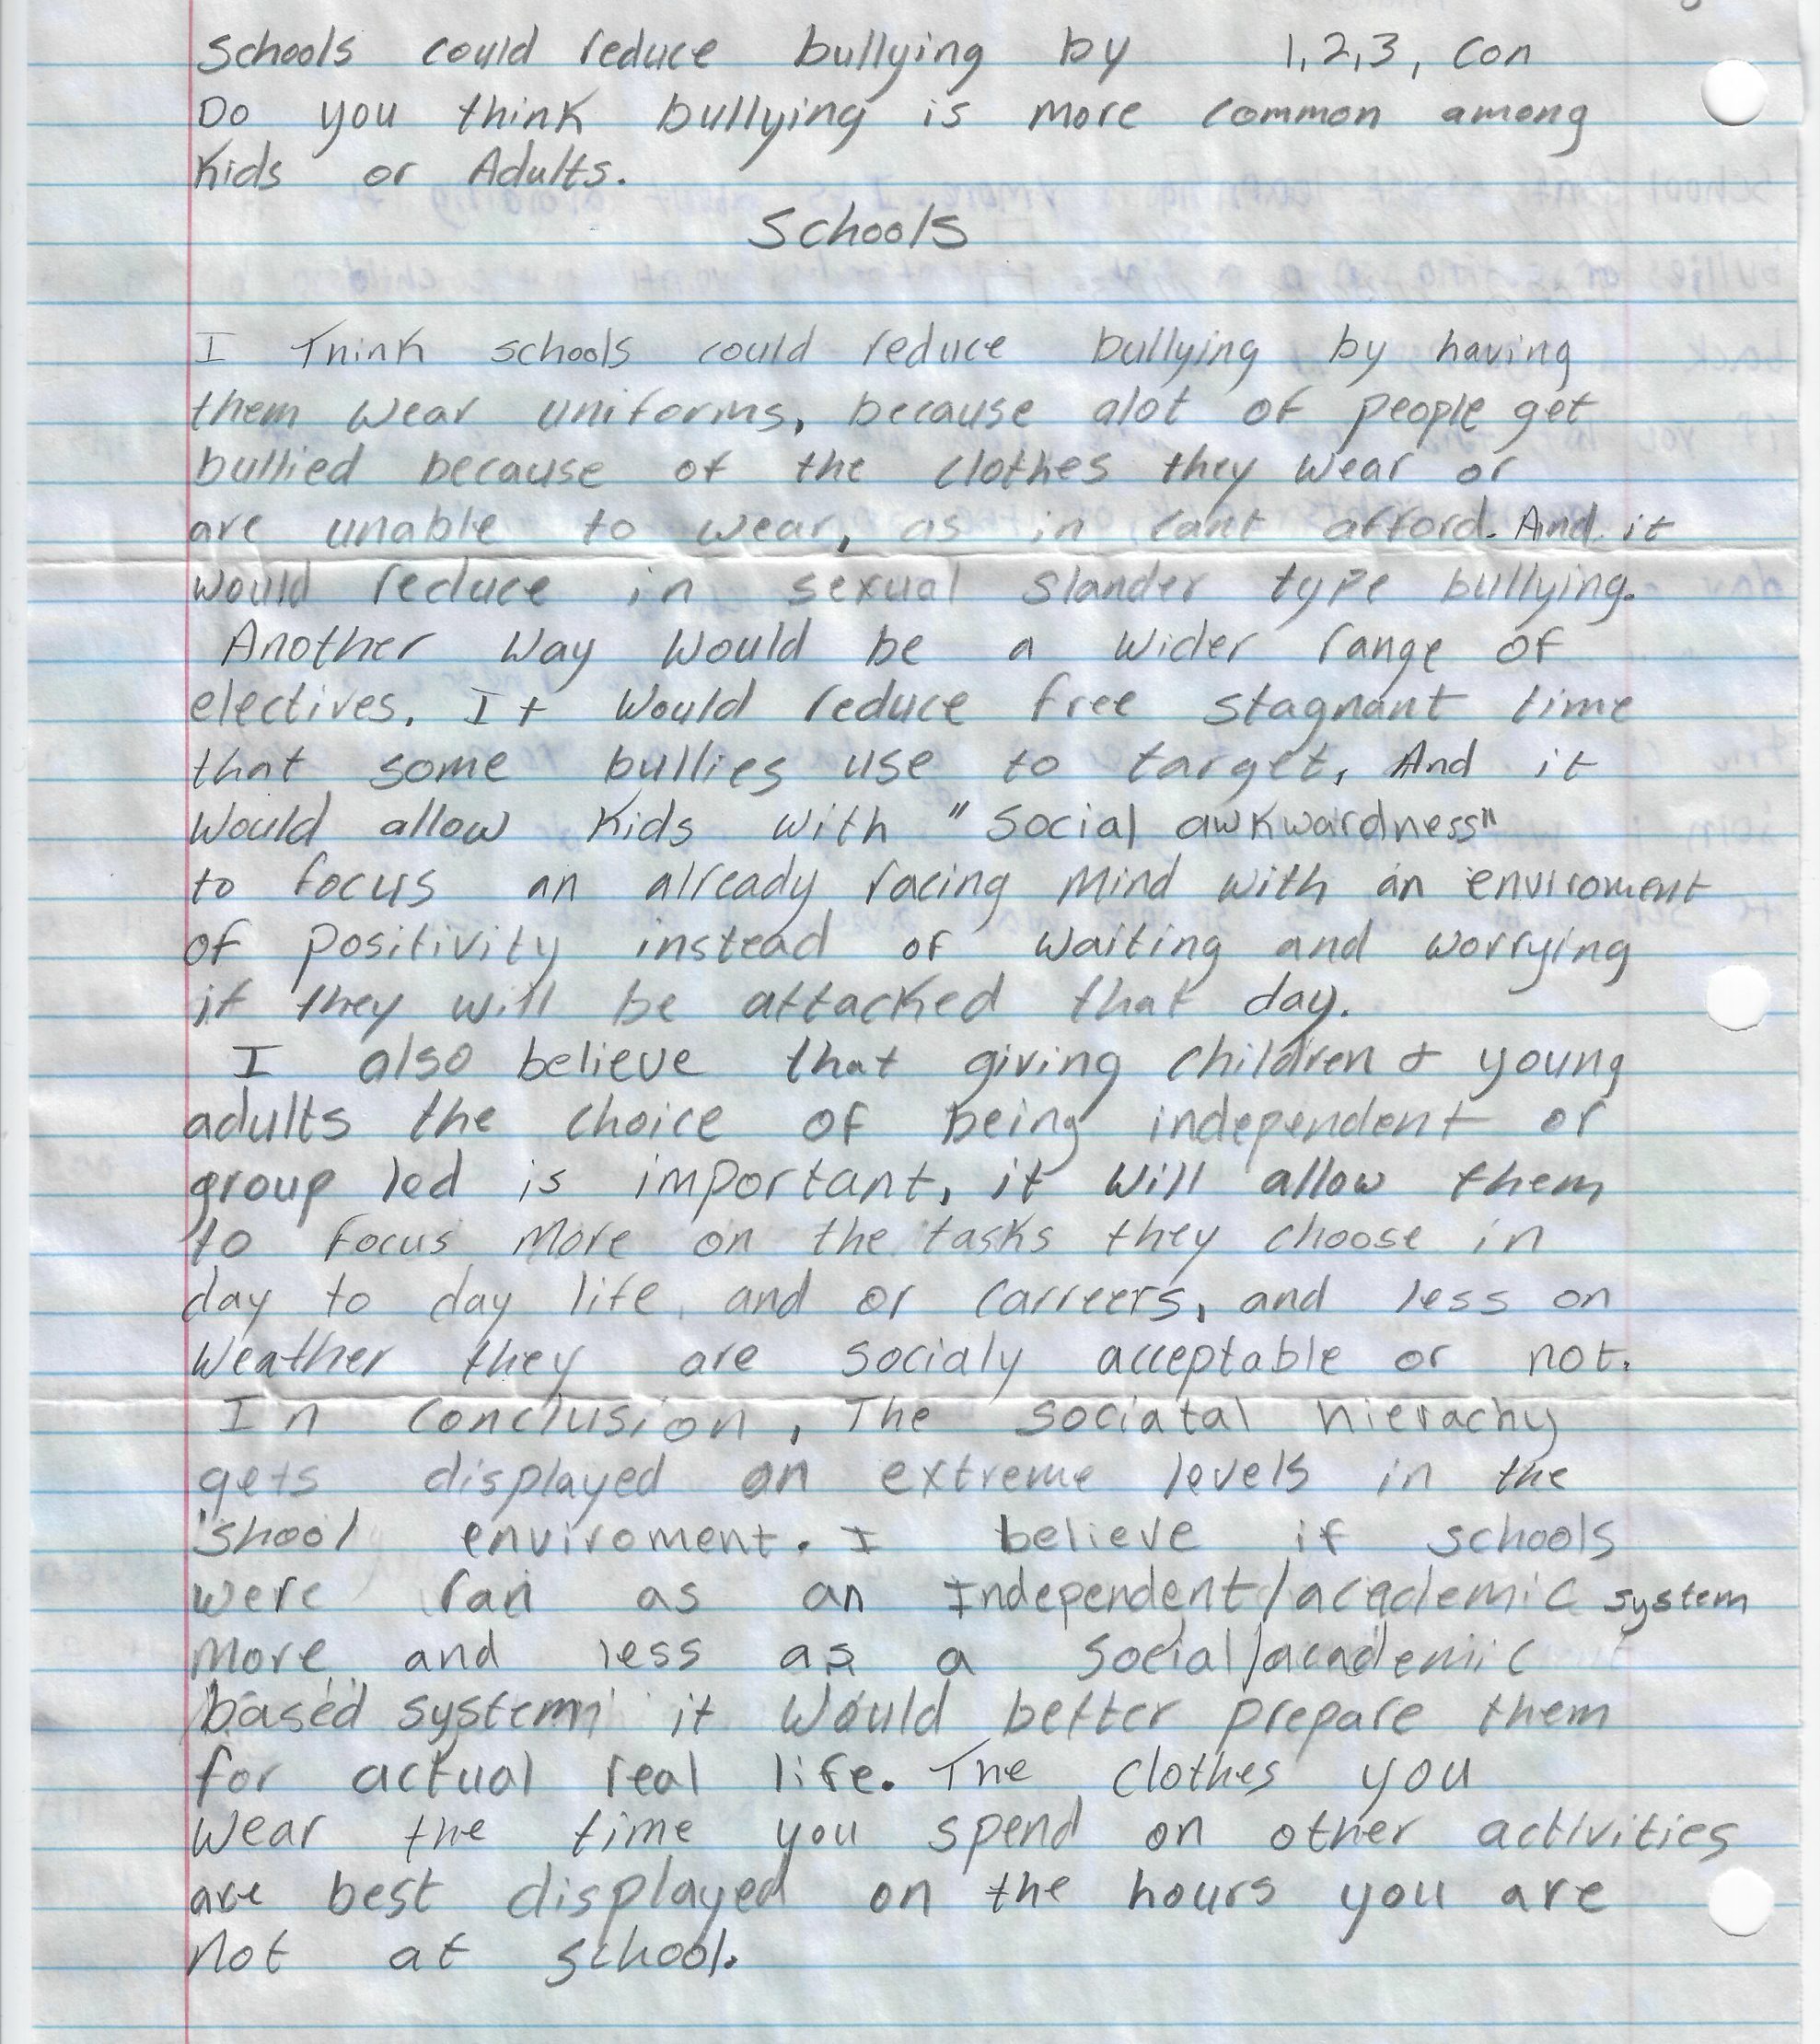 Schools could reduce bullying by 1,2,3, Con
Do you think bullying is more common among
Kids or Adults.
Schools
I Think schools could reduce bullying by having
them wear uniforms, because alot of people get
bullied because of the clothes they wear or
are unable to wear, as in cant afford. And it
would reduce in sexual slander type bullying.
Another way would be a wider range of
electives. It would reduce free stagnant time
that some bullies use to target, And it
would allow kids with "social awkwardness"
to focus an already racing mind with an enviroment
of positivity instead of waiting and worrying
if they will be attacked that day.
I also believe that giving children & young
adults the choice of being independent or
group led is important, it will allow them
to focus more on the tasks they choose in
day to day life and or carreers, and less on
weather they are socialy acceptable or not.
In conclusion, The sociatal hierachy
gets displayed on extreme levels in the
shool enviroment. I believe if schools
were ran as an Independent/academic system
more and less as a social/academic
based system it would better prepare them
for actual real life. The clothes you
wear the time you spend on other activities
are best displayed on the hours you are
not at school.